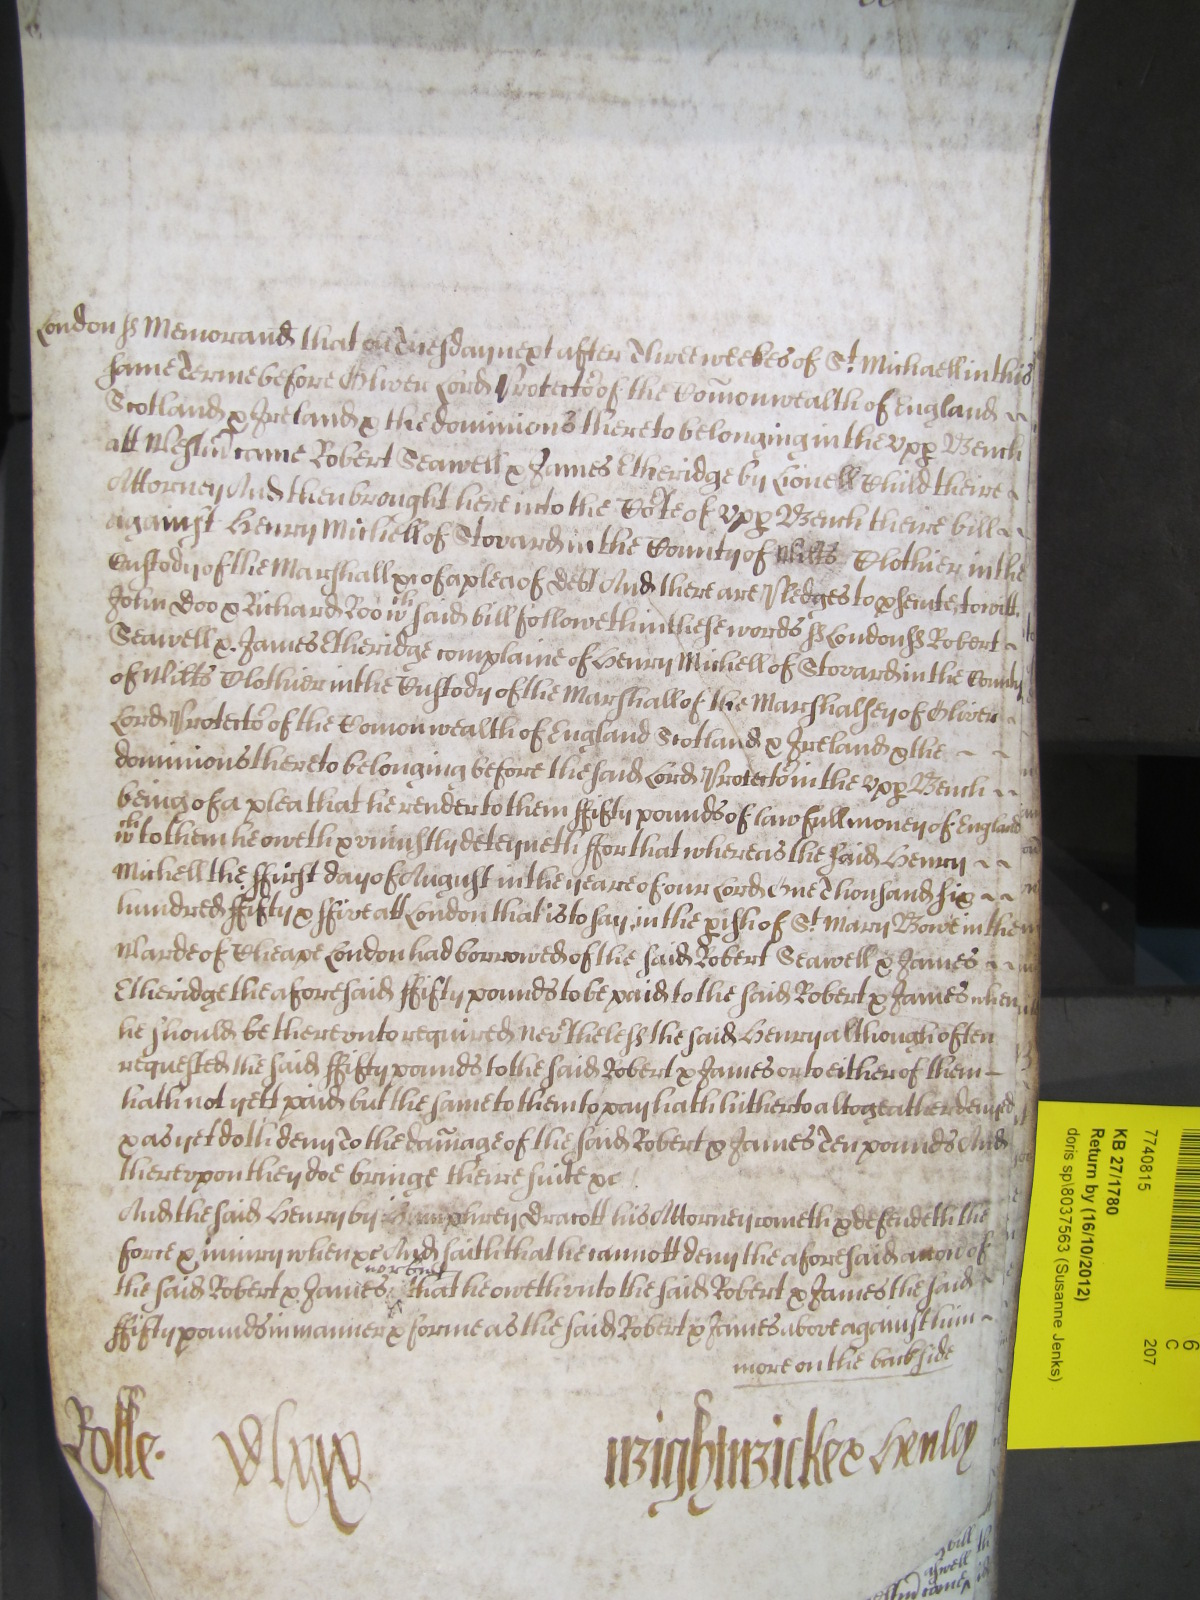 London ss Memorand that on Tuesday next after Three weekes of St. Michaell in this
same Terme before Oliver Lord Protector of the Comonwealth of England
Scotland & Ireland & the dominions thereto belonging in the Upp Bench
att Westm came Robert Seawell & James Etheridge by Lionell Child theire
Attorney And then brought here into the Co'te of Upp Bench theire bill
against Henry Michell of Stovard in the County of Wilts Clothier in the
Custody of the Marshall &c of a plea of debt And there are Pledges to p'sente to witt
John Doo & Richard Roo wch said bill followeth in these words ss London ss Robert
Seawell & James Etheridge complaine of Henry Michell of Stovard in the County
of Wilts Clothier in the Custody of the Marshall of the Marshalsey of Oliver
Lord Protector of the Comonwealth of England Scotland & Ireland & the
dominions thereto belonging before the said Lord Protector in the Upp Bench
being of a plea that he render to them ffifty pounds of lawfull money of England
wch to them he oweth & uniustly deteyneth ffor that whereas the said Henry
Michell the ffirst day of August in the yeare of our Lord One Thousand six
hundred ffifty & ffive att London that is to say in the pish of St. Mary Bowe in the
Warde of Cheape London had borrowed of the said Robert Seawell & James
Etheridge the aforesaid ffifty pounds to be paid to the said Robert & James when
he should be thereunto required nev'theless the said Henry although often
requested the said ffifty pounds to the said Robert & James or to either of them
hath not yett paid but the same to them to pay hath hitherto altogeather denyed
& as yet doth deny To the damage of the said Robert & James Ten pounds And
thereupon they doe bringe theire suite &c
And the said Henry by Humphrey Dracott his Attorney cometh & defendeth the
force & iniury when &c And saith that he cannott deny the aforesaid accon of
nor but
the said Robert & James that he oweth unto the said Robert & James the said
ffifty pounds in manner & forme as the said Robert & James above against him
more on the backside
Rolle. Wightwicke & Henley
7740815
KB 27/1780
Return by (16/10/2012)
doris sp\8037563 (Susanne Jenks)
6
C
207